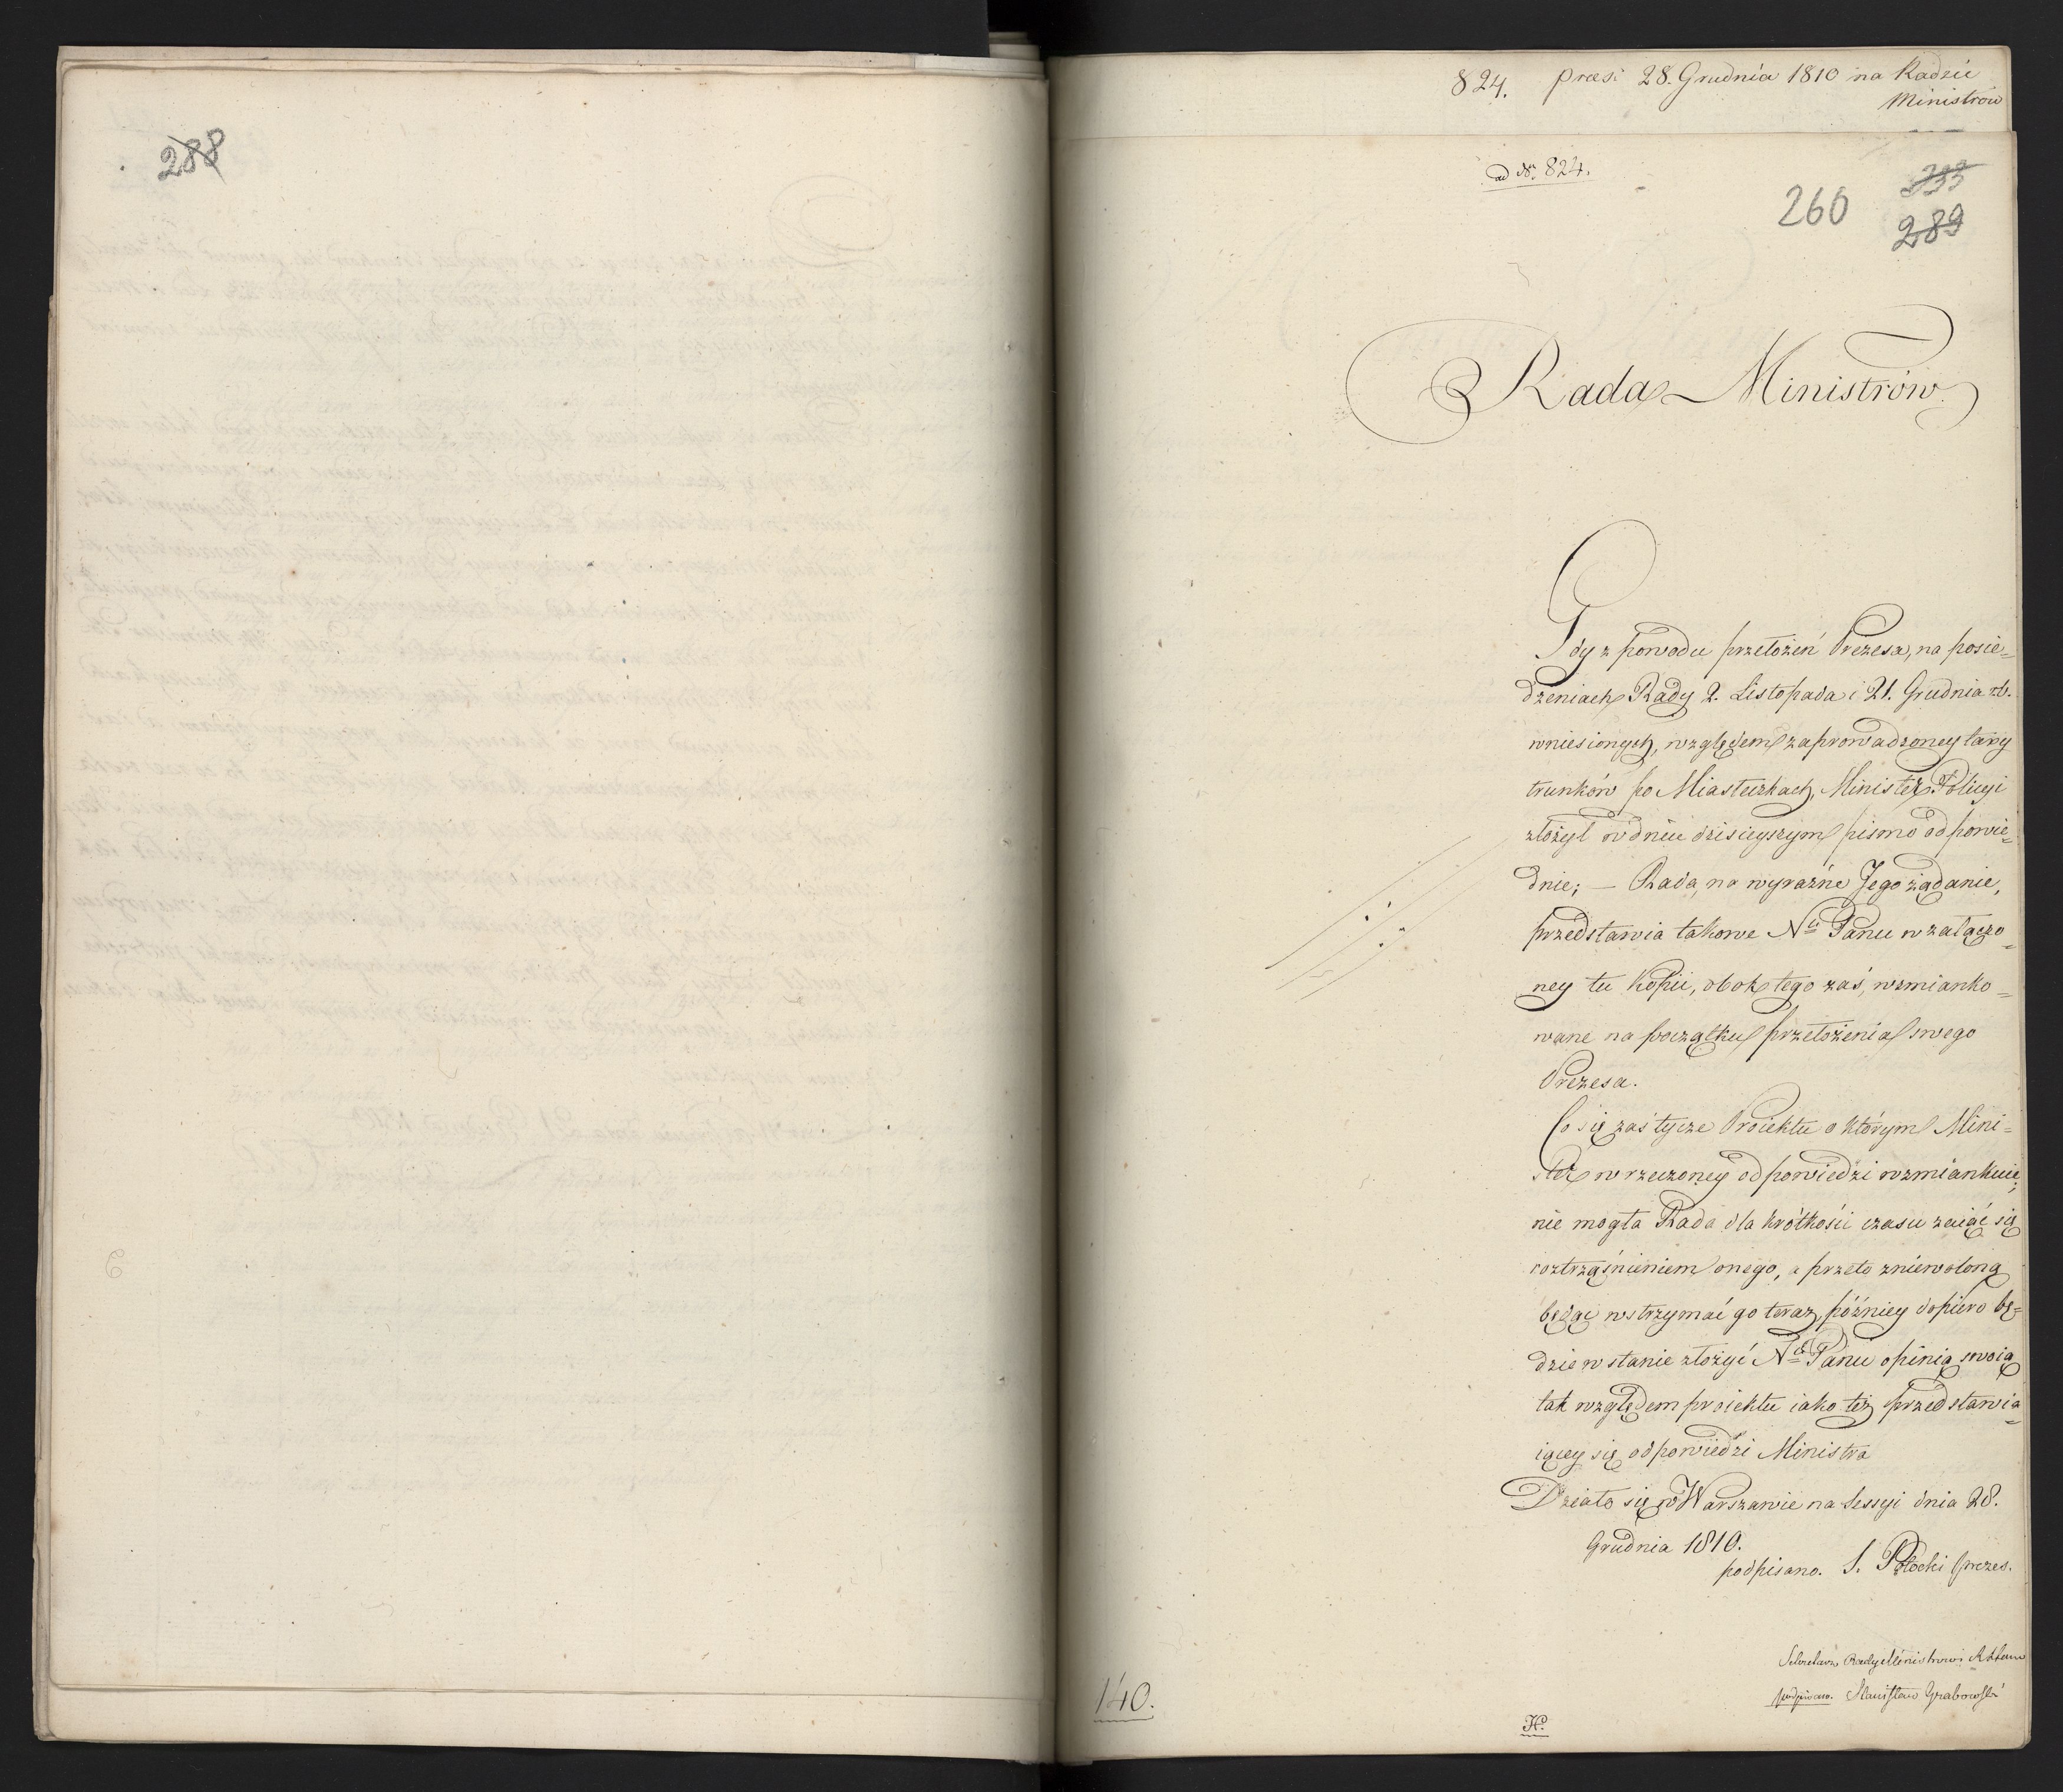 288
824. præs: 28. Grudnia 1810 na Radzie
Ministrów
ad N. 824.
333
260
289
Rada Ministrów
Gdy z powodu przełożeń Prezesa, na posie=
dzeniach Rady 2. Listopada i 21. Grudnia rb.
wniesionych, względem zaprowadzoney taxy
trunków po Miasteczkach, Minister Policyi
złożył w dniu dzisieyszym pismo odpowie=
dnie; — Rada, na wyraźne Jego żądanie,
przedstawia takowe N. Panu w załączo=
ney tu Kopii, obok tego zaś, wzmianko=
wane na początku przełożenia swego
Prezesa.
Co się zaś tycze Proiektu o którym Mini=
ster w rzeczoney odpowiedzi wzmiankuie,
nie mogła Rada dla krótkości czasu zaiąć się
roztrząśnieniem onego, a przeto zniewoloną
będąc wstrzymać go teraz, późniey dopiero bę=
dzie w stanie złożyć N. Panu opinią swoią
tak względem proiektu iako też przedstawia=
iącey się odpowiedzi Ministra
Działo się w Warszawie na Sessyi dnia 28.
Grudnia 1810.
podpisano. S. Potocki prezes.
Sekretarz Rady Ministrów
podpisano. Stanisław Grabowski
140.